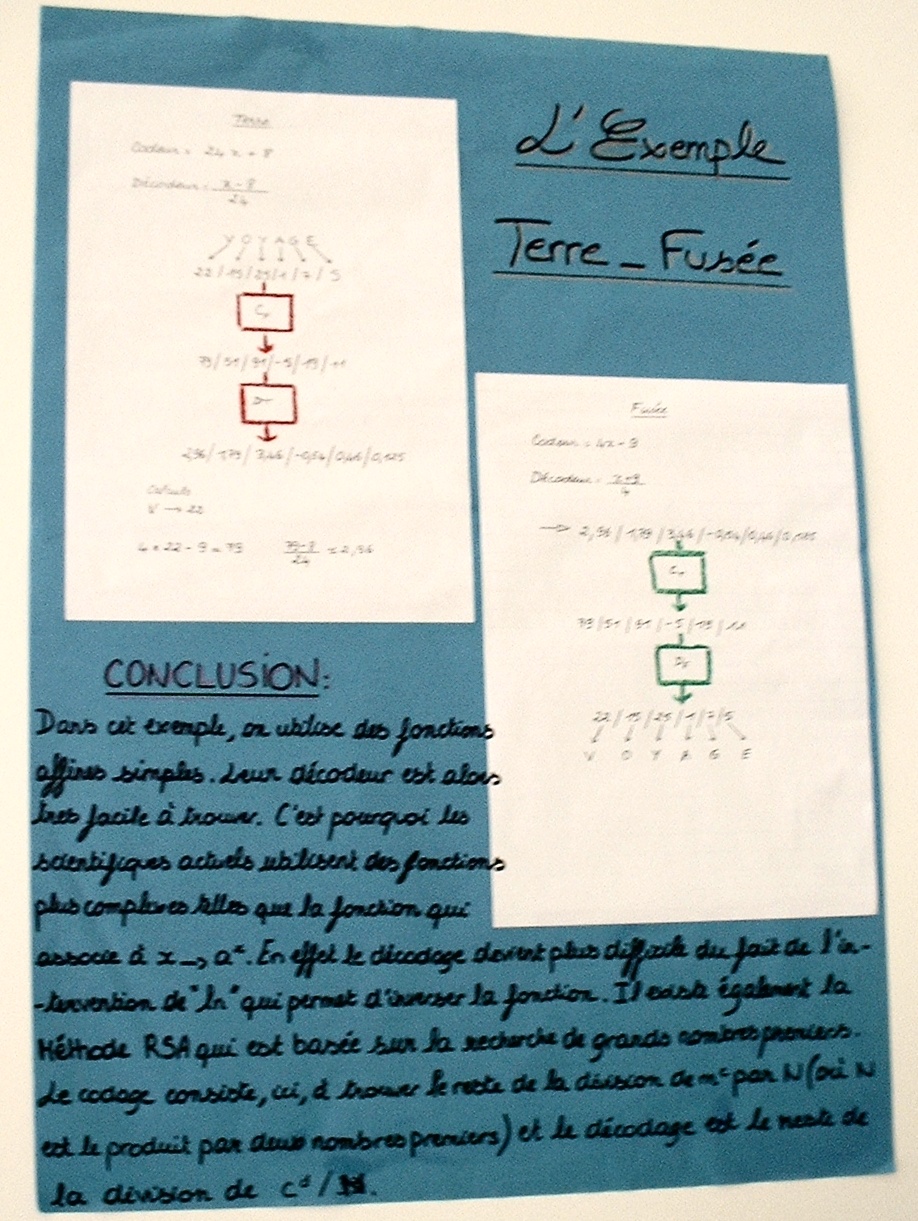 L'Exemple
Terre_Fusée
Terre
Codeur = 24x + 8
Décodeur = x-8
24
V O Y A G E
22 / 15 / 25 / 1 / 7 / 5
79 / 51 / 91 / -5 / 19 / 11
2,96 / 1,79 / 3,46 / -0,54 / 0,46 / 0,125
Calculs
V → 22
4 × 22 - 9 = 79
79-8
24
= 2,96
Fusée
Codeur = 4x - 9
Décodeur = x+9
4
→ 2,96 / 1,79 / 3,46 / -0,54 / 0,46 / 0,125
79 / 51 / 91 / -5 / 19 / 11
22 / 15 / 25 / 1 / 7 / 5
V O Y A G E
CONCLUSION:
Dans cet exemple, on utilise des fonctions
affines simples. Leur décodeur est alors
très facile à trouver. C'est pourquoi les
scientifiques actuels utilisent des fonctions
plus complexes telles que la fonction qui
associe à x → aˣ. En effet le décodage devient plus difficile du fait de l'in-
-tervention de "ln" qui permet d'inverser la fonction. Il existe également la
Méthode RSA qui est basée sur la recherche de grands nombres premiers.
Le codage consiste, ici, à trouver le reste de la division de mᶜ par N (où N
est le produit par deux nombres premiers) et le décodage est le reste de
la division de cᵈ / N.